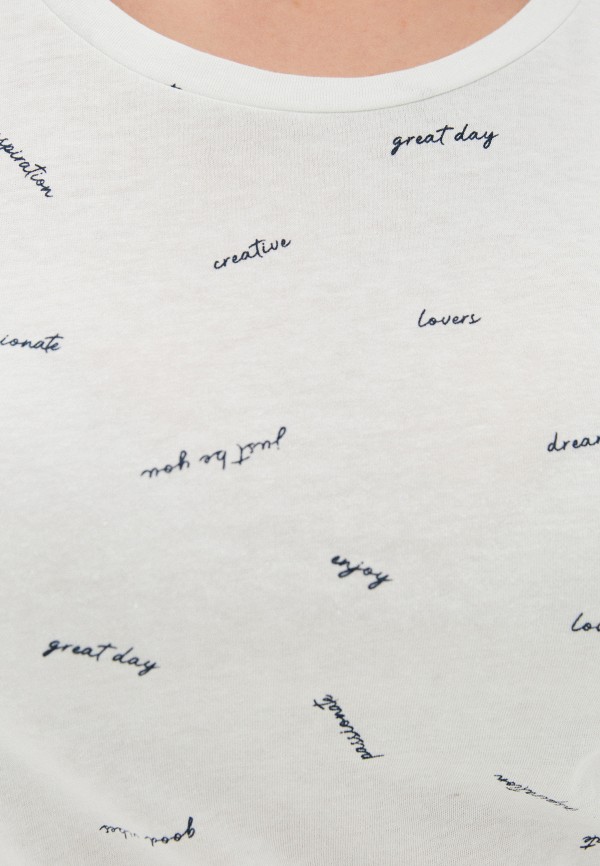 great day
spiration
creative
lovers
ionate
just be you
drea
enjoy
lo
great day
passionate
good vibes